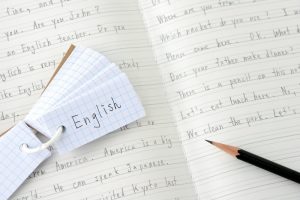 fine, and
you. Are you John?
an English teacher. Do you
English is very
like English
English
America. America is a big
world. He can speak Japanese.
visited Kyoto last
Where are you from?
Which racket do you use?
Please come here. OK.
Does your father make dinner?
There is a pencil on this
Let's eat lunch here. No,
We clean the park. Let's